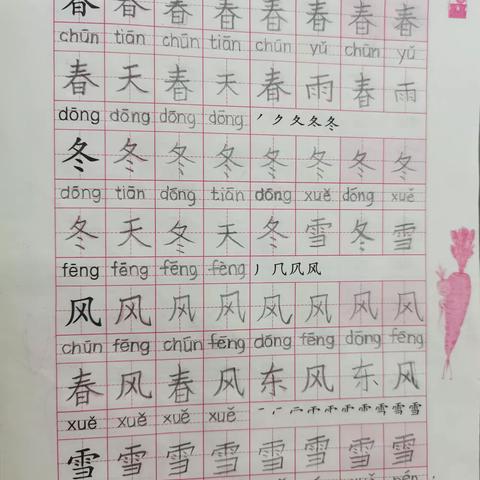 春 春 春 春 春 春 春 春
chūn tiān chūn tiān chūn yǔ chūn yǔ
春 天 春 天 春 雨 春 雨
dōng dōng dōng dōng 丿 ク 夂 冬 冬
冬 冬 冬 冬 冬 冬 冬 冬
dōng tiān dōng tiān dōng xuě dōng xuě
冬 天 冬 天 冬 雪 冬 雪
fēng fēng fēng fēng 丿 几 凤 风
风 风 风 风 风 风 风 风
chūn fēng chūn fēng dōng fēng dōng fēng
春 风 春 风 东 风 东 风
xuě xuě xuě xuě
雪 雪 雪 雪 雪 雪 雪 雪